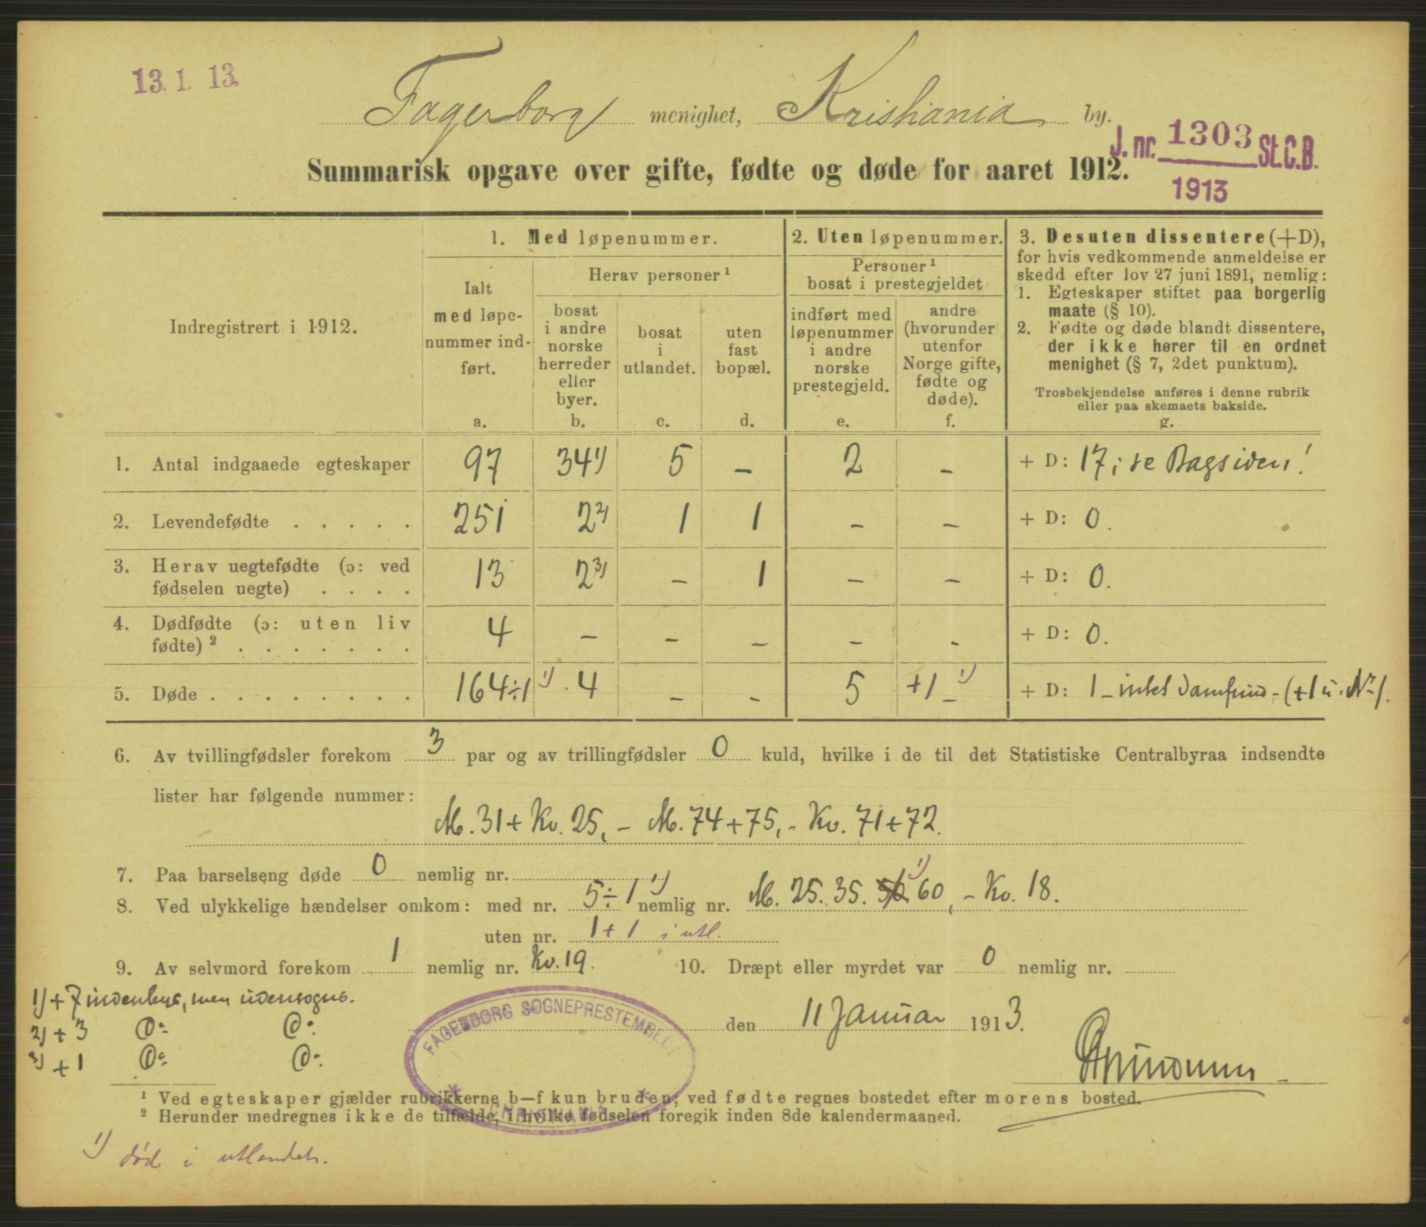 13. 1. 13.
Fagerborg menighet, Kristiania by.
J. nr. 1303 St.C.B.
1913
Summarisk opgave over gifte, fødte og døde for aaret 1912.
Indregistrert i 1912.
1. Med løpenummer.
Ialt med løpenummer indført.
a.
Herav personer ¹
bosat i andre norske herreder eller byer.
b.
bosat i utlandet.
c.
uten fast bopæl.
d.
2. Uten løpenummer.
Personer ¹ bosat i prestegjeldet
indført med løpenummer i andre norske prestegjeld.
e.
andre (hvorunder utenfor Norge gifte, fødte og døde).
f.
3. Desuten dissentere (+D),
for hvis vedkommende anmeldelse er
skedd efter lov 27 juni 1891, nemlig:
1. Egteskaper stiftet paa borgerlig
maate (§ 10).
2. Fødte og døde blandt dissentere,
der ikke hører til en ordnet
menighet (§ 7, 2det punktum).
Trosbekjendelse anføres i denne rubrik
eller paa skemaets bakside.
g.
1. Antal indgaaede egteskaper 97 34 1) 5 – 2 – + D: 17; se Bagsiden!
2. Levendefødte . . . . . 251 2 2) 1 1 – – + D: 0.
3. Herav uegtefødte (ɔ: ved
fødselen uegte) . . . . 13 2 3) – 1 – – + D: 0.
4. Dødfødte (ɔ: uten liv
fødte) ² . . . . . . . 4 – – – – – + D: 0.
5. Døde . . . . . . . . 164÷1 1) 4 – – 5 +1 1) – + D: 1 – intet Samfund – (+1 u. Nr.).
6. Av tvillingfødsler forekom 3 par og av trillingfødsler 0 kuld, hvilke i de til det Statistiske Centralbyraa indsendte
lister har følgende nummer:
M. 31 + Kv. 25, – M. 74 + 75, – Kv. 71 + 72.
7. Paa barselseng døde 0 nemlig nr.
8. Ved ulykkelige hændelser omkom: med nr. 5÷1 1) nemlig nr. M. 25. 35. 52 1) 60, – Kv. 18.
uten nr. 1+1 i utl.
9. Av selvmord forekom 1 nemlig nr. Kv. 19. 10. Dræpt eller myrdet var 0 nemlig nr.
1) + 7 indenbys, men udensogns.
2) + 3 Do. Do.
3) + 1 Do. Do.
FAGERBORG SOGNEPRESTEMBEDE
den 11 Januar 1913.
¹ Ved egteskaper gjælder rubrikkerne b—f kun bruden; ved fødte regnes bostedet efter morens bosted.
² Herunder medregnes ikke de tilfælde, i hvilke fødselen foregik inden 8de kalendermaaned.
1) død i utlandet.